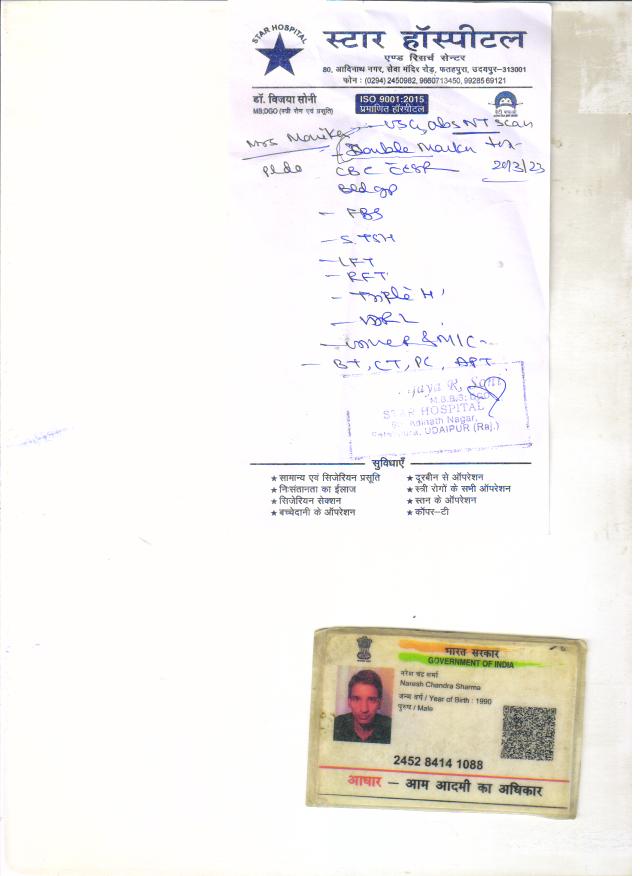 STAR HOSPITAL
स्टार हॉस्पीटल
एण्ड रिसर्च सेन्टर
80, आदिनाथ नगर, सेवा मंदिर रोड़, फतहपुरा, उदयपुर–313001
फोन : (0294) 2450982, 9660713450, 9928569121
डॉ. विजया सोनी
MS;DGO (स्त्री रोग एवं प्रसूति)
ISO 9001:2015
प्रमाणित हॉस्पीटल
Mrs USG obs NT Scan
Double Marker
20/3/23
Plde
CBC ESR
Bld gp
– FBS
– S. TSH
– LFT
– RFT
– Triple H
– VDRL
– R & M/C
– BT, CT, PC, APT
jaya R. Soni
M.B.B.S; DGO
STAR HOSPITAL
80, Adinath Nagar,
UDAIPUR (Raj.)
सुविधाएँ
★ सामान्य एवं सिजेरियन प्रसूति ★ दूरबीन से ऑपरेशन
★ निःसंतानता का ईलाज ★ स्त्री रोगों के सभी ऑपरेशन
★ सिजेरियन सेक्शन ★ स्तन के ऑपरेशन
★ बच्चेदानी के ऑपरेशन ★ कॉपर–टी
भारत सरकार
GOVERNMENT OF INDIA
नरेश चंद्र शर्मा
Naresh Chandra Sharma
जन्म वर्ष / Year of Birth : 1990
पुरुष / Male
2452 8414 1088
आधार – आम आदमी का अधिकार